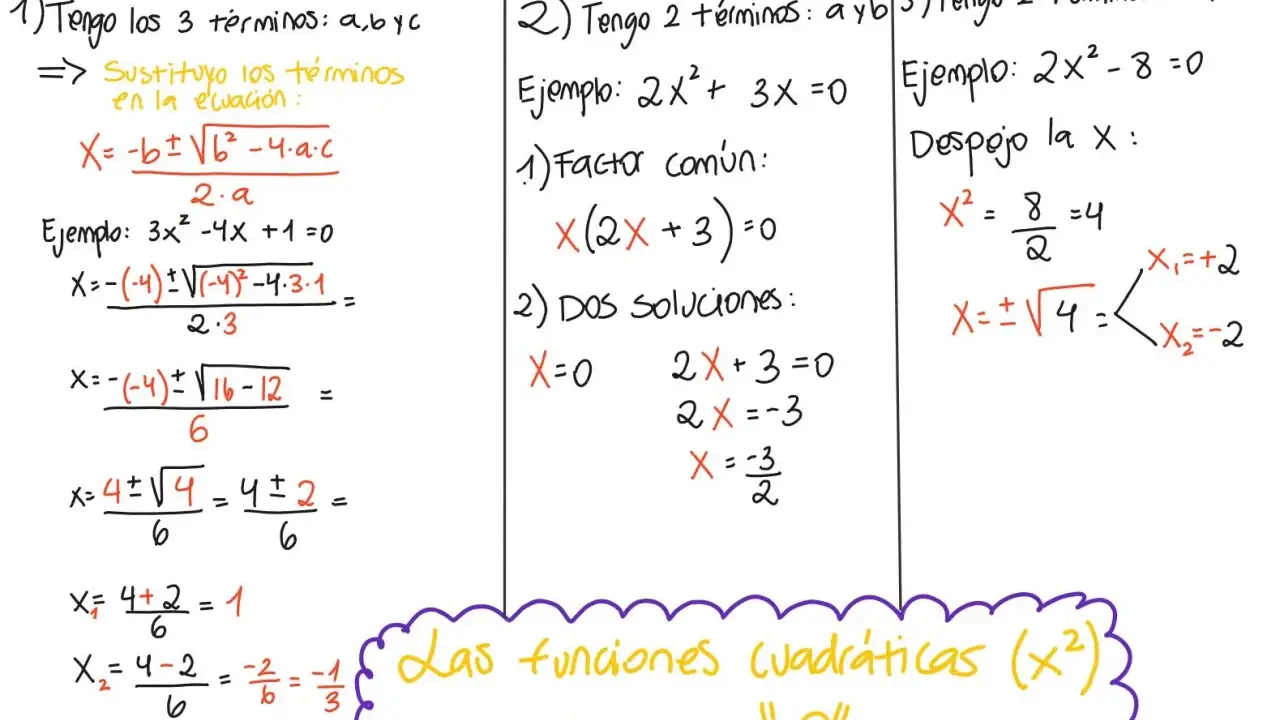 1) Tengo los 3 términos: a, b y c
=> Sustituyo los términos
en la ecuación:
X = -b ± √b² - 4·a·c / 2·a
Ejemplo: 3x² - 4x + 1 = 0
x = -(-4) ± √(-4)² - 4·3·1 / 2·3 =
x = -(-4) ± √16 - 12 / 6 =
x = 4 ± √4 / 6 = 4 ± 2 / 6 =
x₁ = 4 + 2 / 6 = 1
X₂ = 4 - 2 / 6 = -2/6 = -1/3
2) Tengo 2 términos: a y b
Ejemplo: 2x² + 3x = 0
1) Factor común:
x(2x + 3) = 0
2) Dos soluciones:
X = 0 2x + 3 = 0
2x = -3
x = -3/2
3) Tengo 2
Ejemplo: 2x² - 8 = 0
Despejo la X:
x² = 8/2 = 4
x = ± √4 =
x₁ = +2
x₂ = -2
Las funciones cuadráticas (x²)